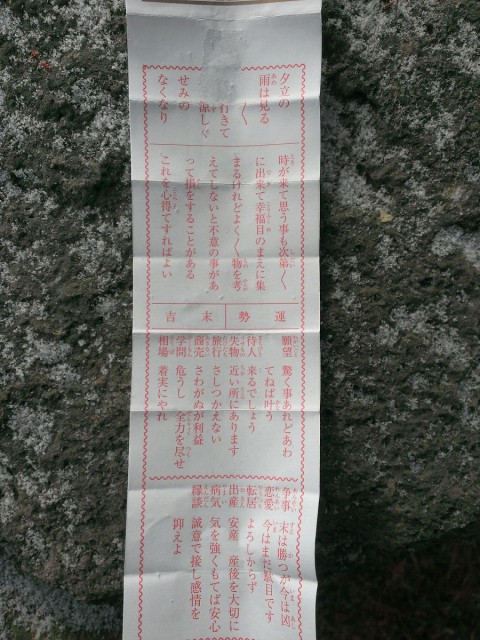 夕立の
雨は見る
〱 行きて
涼しく
せみの
なくなり
時が来て思う事も次第〱
に出来て幸福目のまえに集
まるけれどよく〱物を考
えてしないと不意の事があ
って損をすることがある
これを心得てすればよい
運勢 末吉
願望 驚く事あれどあわ
てねば叶う
待人 来るでしょう
失物 近い所にあります
旅行 さしつかえない
商売 さわがぬが利益
学問 危うし 全力を尽せ
相場 着実にやれ
争事 末は勝つが今は凶
恋愛 今はまだ駄目です
転居 よろしからず
出産 安産 産後を大切に
病気 気を強くもてば安心
縁談 誠意で接し感情を
抑えよ